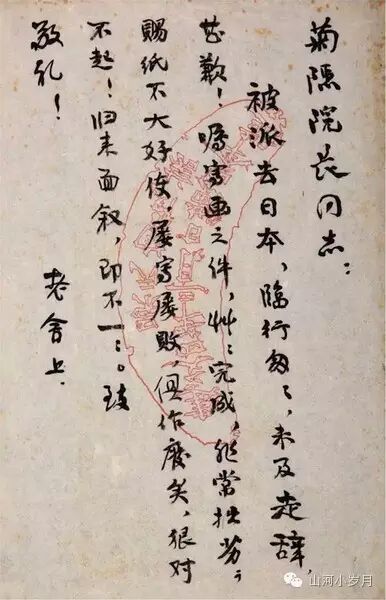 菊隱院长同志：
被派去日本，临行匆〻，未及走辞，
甚歉！嘱寫画之件，艸〻完成，非常拙劣；
赐纸不大好使，屡寫屡败，但作廢矣，狠对
不起！归来面叙，即不一〻。致
敬礼！
老舍上.
山河小岁月